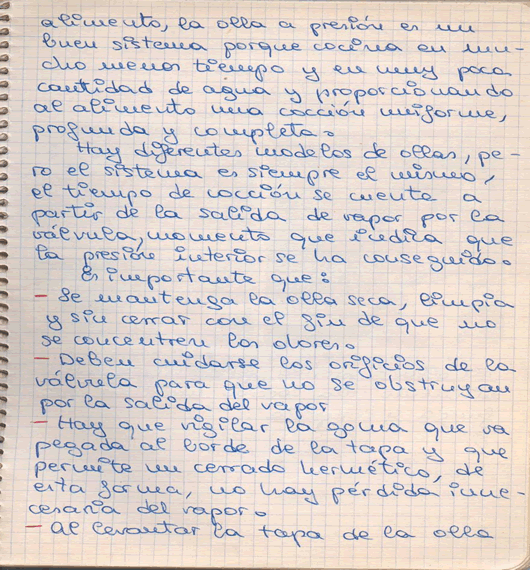 alimento, la olla a presión es un
buen sistema porque cocina en mu-
cho menos tiempo y en muy poca
cantidad de agua y proporcionando
al alimento una cocción uniforme,
profunda y completa.
Hay diferentes modelos de ollas, pe-
ro el sistema es siempre el mismo,
el tiempo de cocción se cuenta a
partir de la salida de vapor por la
válvula, momento que indica que
la presión interior se ha conseguido.
Es importante que:
- Se mantenga la olla seca, limpia
y sin cerrar con el fin de que no
se concentren los olores.
- Deben cuidarse los orificios de la
válvula para que no se obstruyan
por la salida del vapor
- Hay que vigilar la goma que va
pegada al borde de la tapa y que
permite un cerrado hermético, de
esta forma, no hay pérdida inne-
cesaria del vapor.
- Al levantar la tapa de la olla